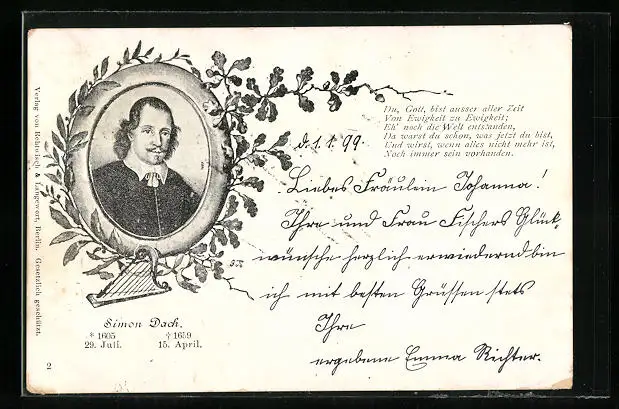 Du, Gott, bist ausser aller Zeit
Von Ewigkeit zu Ewigkeit;
Eh' noch die Welt entstanden,
Da warst du schon, was jetzt du bist,
Und wirst, wenn alles nicht mehr ist,
Noch immer sein vorhanden.
d. 1. 1. 99.
Liebes Fräulein Johanna!
Ihre und Frau Fischers Glück-
wünsche herzlich erwiedernd bin
ich mit besten Grüssen stets
Ihre
ergebene Emma Richter.
Simon Dach,
* 1605 † 1659
29. Juli. 15. April.
2
Verlag von Rohtwisch & Langewort, Berlin. Gesetzlich geschützt.